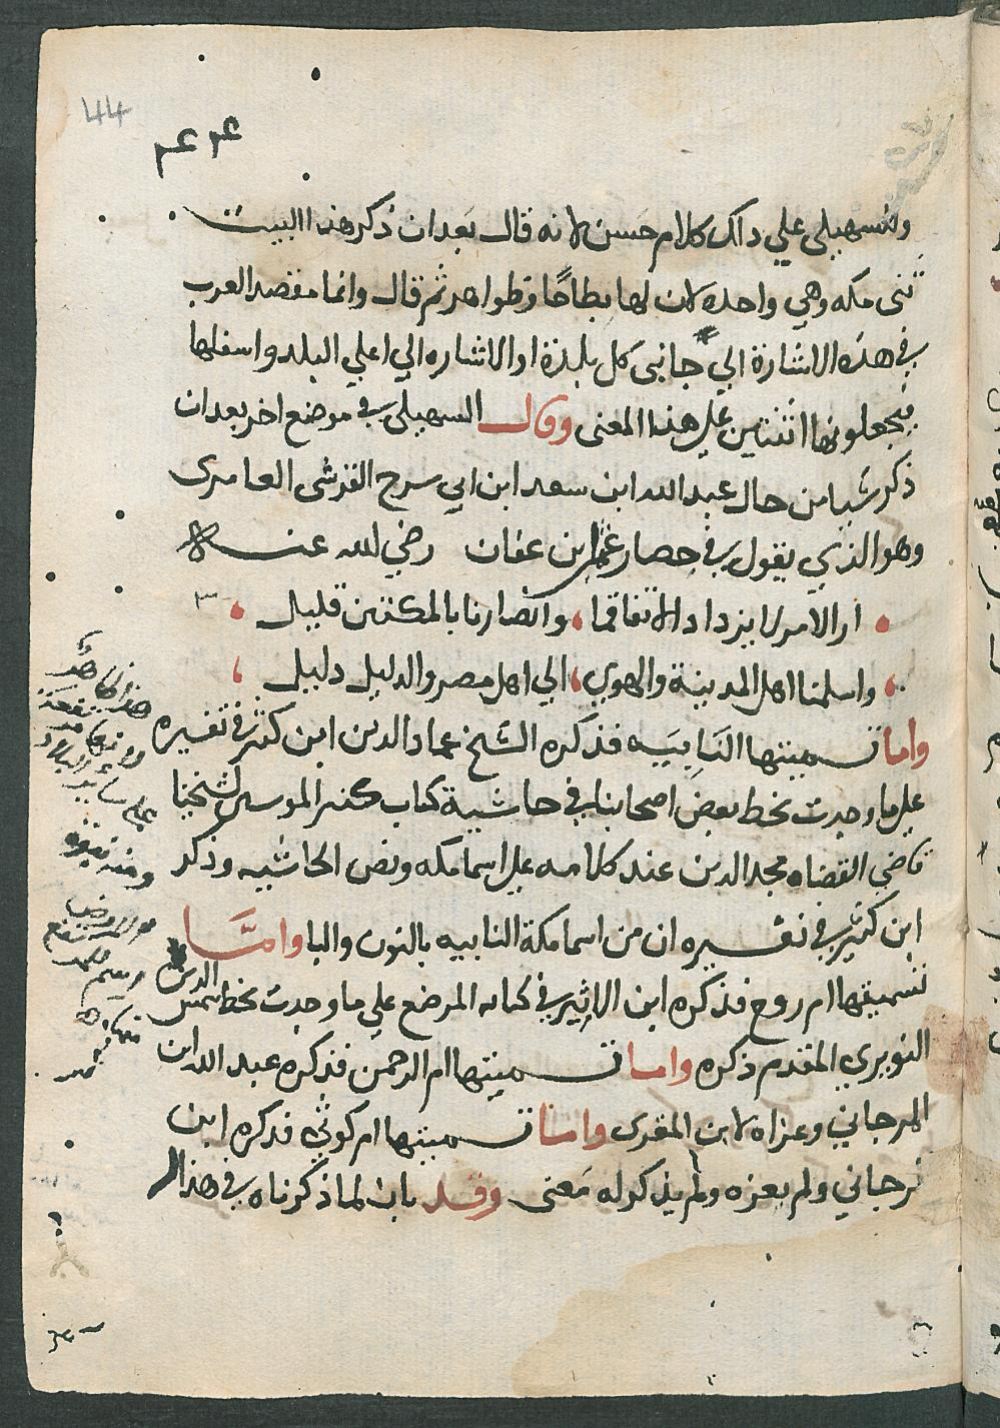 44
٤٣ ٤٣
وللسهيلي علي داك كلام حسن لانه قال بعد ان ذكر هذا البيت
ثنى مكه وهي واحده لان لها بطاحًا وظواهر ثم قال وانما مقصد العرب
في هذه الاشارة الي جانبى كل بلدة او الاشاره الي اعلي البلد واسفلها
فيجعلونها اثنتين علي هذا المعنى وقال السهيلى في موضع اخر بعد ان
ذكر شيا من حال عبد الله ابن سعد ابن ابي سرح القرشى العامرى
وهو الذي يقول في حصار عثمان بن عفان رضي الله عنه
ار الامر لا يزداد الا تفاقما وانصارنا بالمكتين قليل
واسلمنا اهل المدينة والهوي الي اهل مصر والدليل دليل
واما تسميتها النابيه فذكره الشيخ عماد الدين ابن كثير في تفسيره
علي ما وجدت بخط بعض اصحابنا في حاشية كتاب لشيخنا
قاضي القضاه مجد الدين عند كلامه علي اسما مكه ونص الحاشيه وذكر
ابن كثير في تفسيره ان من اسما مكة النابيه بالنون والبا وامّا
تسميتها ام روح فذكره ابن الاثير في كتابه المرصع علي ما وجدت بخط شمس الدين
النويري المقدم ذكره واما تسميتها ام الرحمن فذكره عبد الله ابن
المرجاني وعزاه لابن المقرى وامّا تسميتها ام كوثي فذكره ابن
المرجاني ولم يعزه ولم يذكر له معنى وقد بان لما ذكرناه في هذا